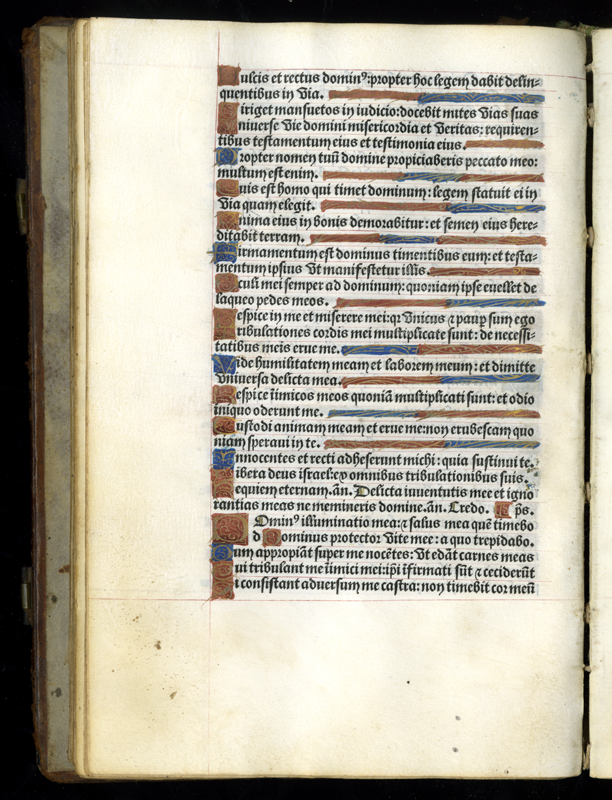 Dulcis et rectus domin⁹: propter hoc legem dabit delin-
quentibus in via.
Diriget mansuetos in iudicio: docebit mites vias suas
Universe vie domini misericordia et veritas: requiren-
tibus testamentum eius et testimonia eius.
Propter nomen tuū domine propiciaberis peccato meo:
multum est enim.
Quis est homo qui timet dominum: legem statuit ei in
via quam elegit.
Anima eius in bonis demorabitur: et semen eius here-
ditabit terram.
Firmamentum est dominus timentibus eum: et testa-
mentum ipsius vt manifestetur illis.
Oculi mei semper ad dominum: quoniam ipse euellet de
laqueo pedes meos.
Respice in me et miserere mei: q̄ vnicus ⁊ paup̄ sum ego
Tribulationes cordis mei multiplicate sunt: de necessi-
tatibus meis erue me.
Vide humilitatem meam et laborem meum: et dimitte
vniuersa delicta mea.
Respice īimicos meos quoniā multiplicati sunt: et odio
iniquo oderunt me.
Custodi animam meam et erue me: non erubescam quo
niam speraui in te.
Innocentes et recti adheserunt michi: quia sustinui te.
Libera deus israel: ex omnibus tribulationibus suis.
Requiem eternam. añ. Delicta iuuentutis mee et igno
rantias meas ne memineris domine. añ. Credo. ps.
Domin⁹ illuminatio mea: ⁊ salus mea quē timebo
Dominus protector vite mee: a quo trepidabo.
Dum appropiāt super me nocētes: vt edāt carnes meas
Qui tribulant me īimici mei: ipi īfirmati sūt ⁊ ceciderūt
Si consistant aduersum me castra: non timebit cor meū